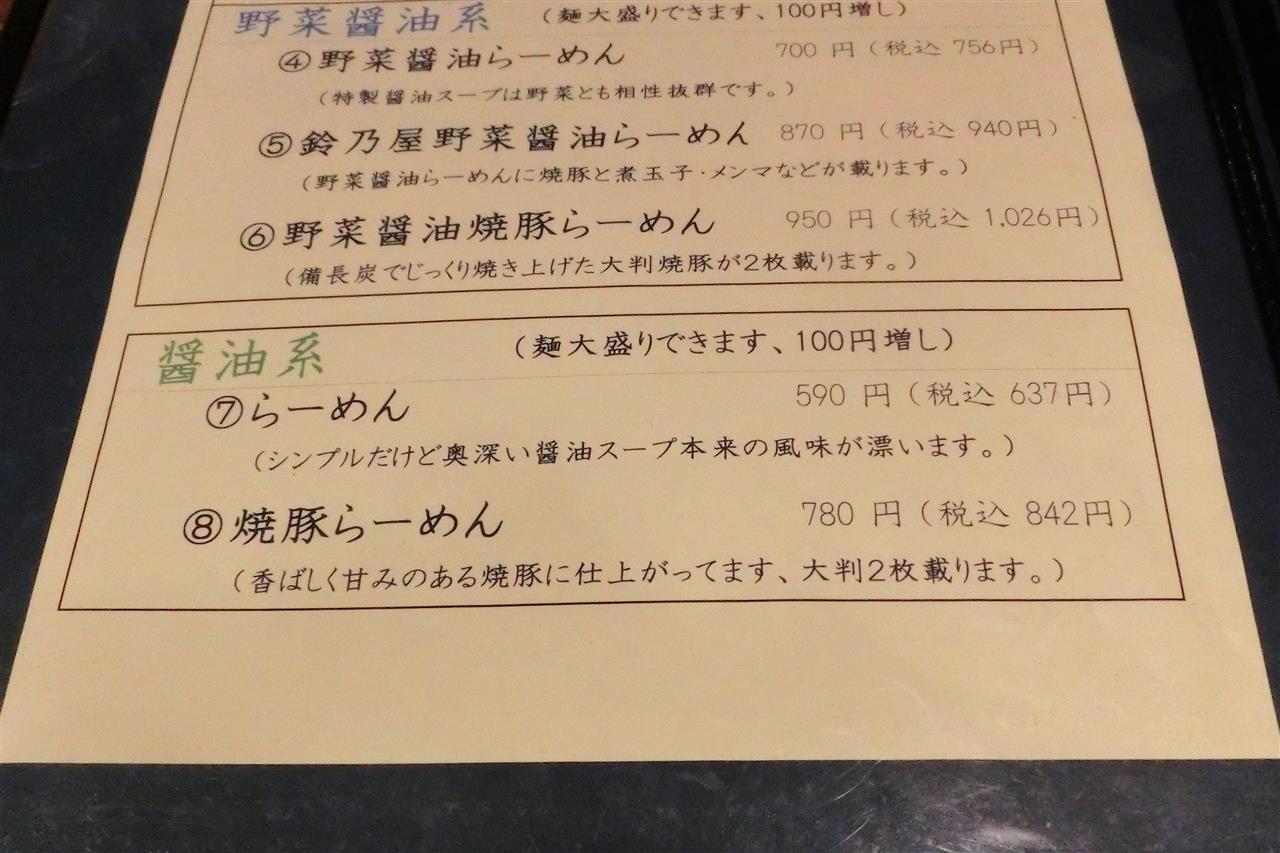 野菜醤油系 (麺大盛りできます、100円増し)
④野菜醤油らーめん 700 円(税込 756円)
(特製醤油スープは野菜とも相性抜群です。)
⑤鈴乃屋野菜醤油らーめん 870 円(税込 940円)
(野菜醤油らーめんに焼豚と煮玉子・メンマなどが載ります。)
⑥野菜醤油焼豚らーめん 950 円(税込 1,026円)
(備長炭でじっくり焼き上げた大判焼豚が2枚載ります。)
醤油系 (麺大盛りできます、100円増し)
⑦らーめん 590 円(税込 637円)
(シンプルだけど奥深い醤油スープ本来の風味が漂います。)
⑧焼豚らーめん 780 円(税込 842円)
(香ばしく甘みのある焼豚に仕上がってます、大判2枚載ります。)